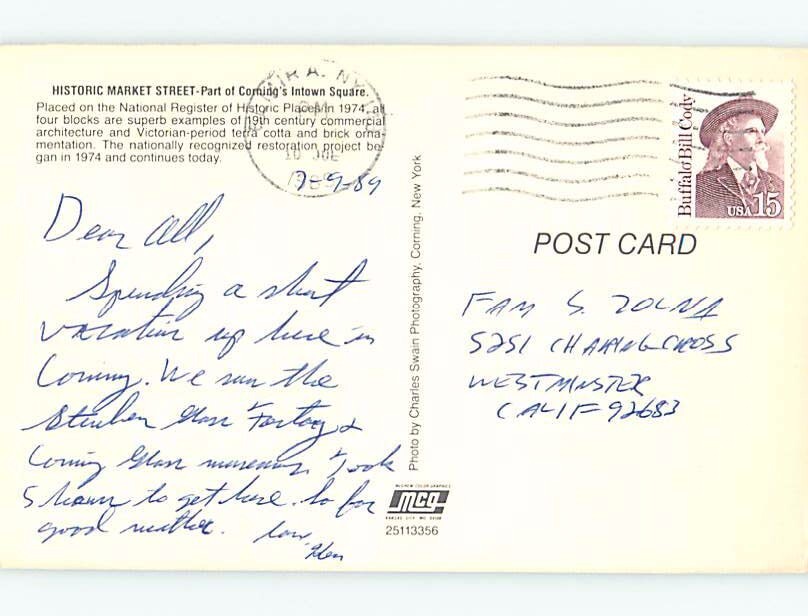 HISTORIC MARKET STREET-Part of Corning's Intown Square.
Placed on the National Register of Historic Places in 1974, all
four blocks are superb examples of 19th century commercial
architecture and Victorian-period terra cotta and brick orna-
mentation. The nationally recognized restoration project be-
gan in 1974 and continues today.
7-9-89
Dear All,
Spending a short
vacation up here in
Corning. We saw the
Steuben Glass Factory &
Corning Glass museum. Took
5 hours to get here. So far
good weather. Love,
ELMIRA, NY
10 JUL
1989
Buffalo Bill Cody
USA 15
POST CARD
FAM S. ZOLNA
5251 CHARINGCROSS
WESTMINSTER
CALIF 92683
Photo by Charles Swain Photography, Corning, New York
McGREW COLOR GRAPHICS
mcg
KANSAS CITY, MO. 64108
25113356